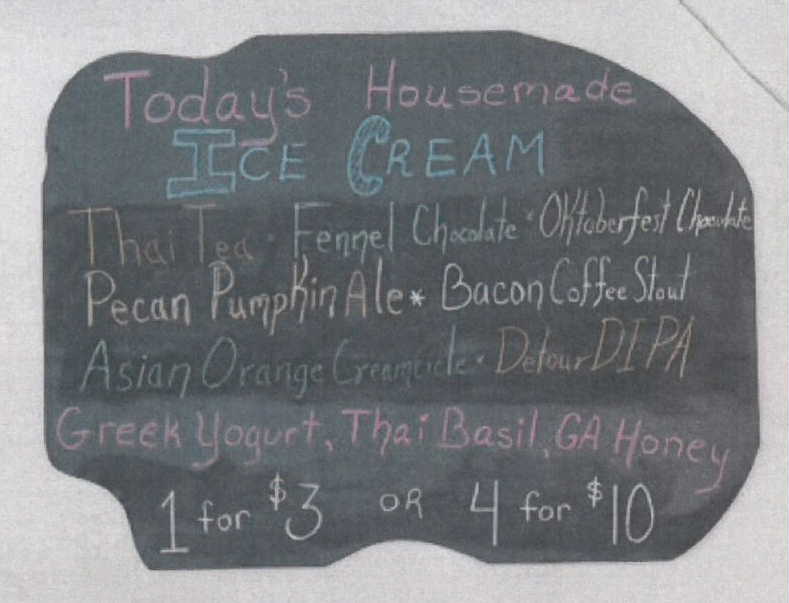 Today's Housemade
ICE CREAM
Thai Tea · Fennel Chocolate * Oktoberfest Chocolate
Pecan Pumpkin Ale * Bacon Coffee Stout
Asian Orange Creamcicle · Detour DIPA
Greek Yogurt, Thai Basil, GA Honey
1 for $3 OR 4 for $10